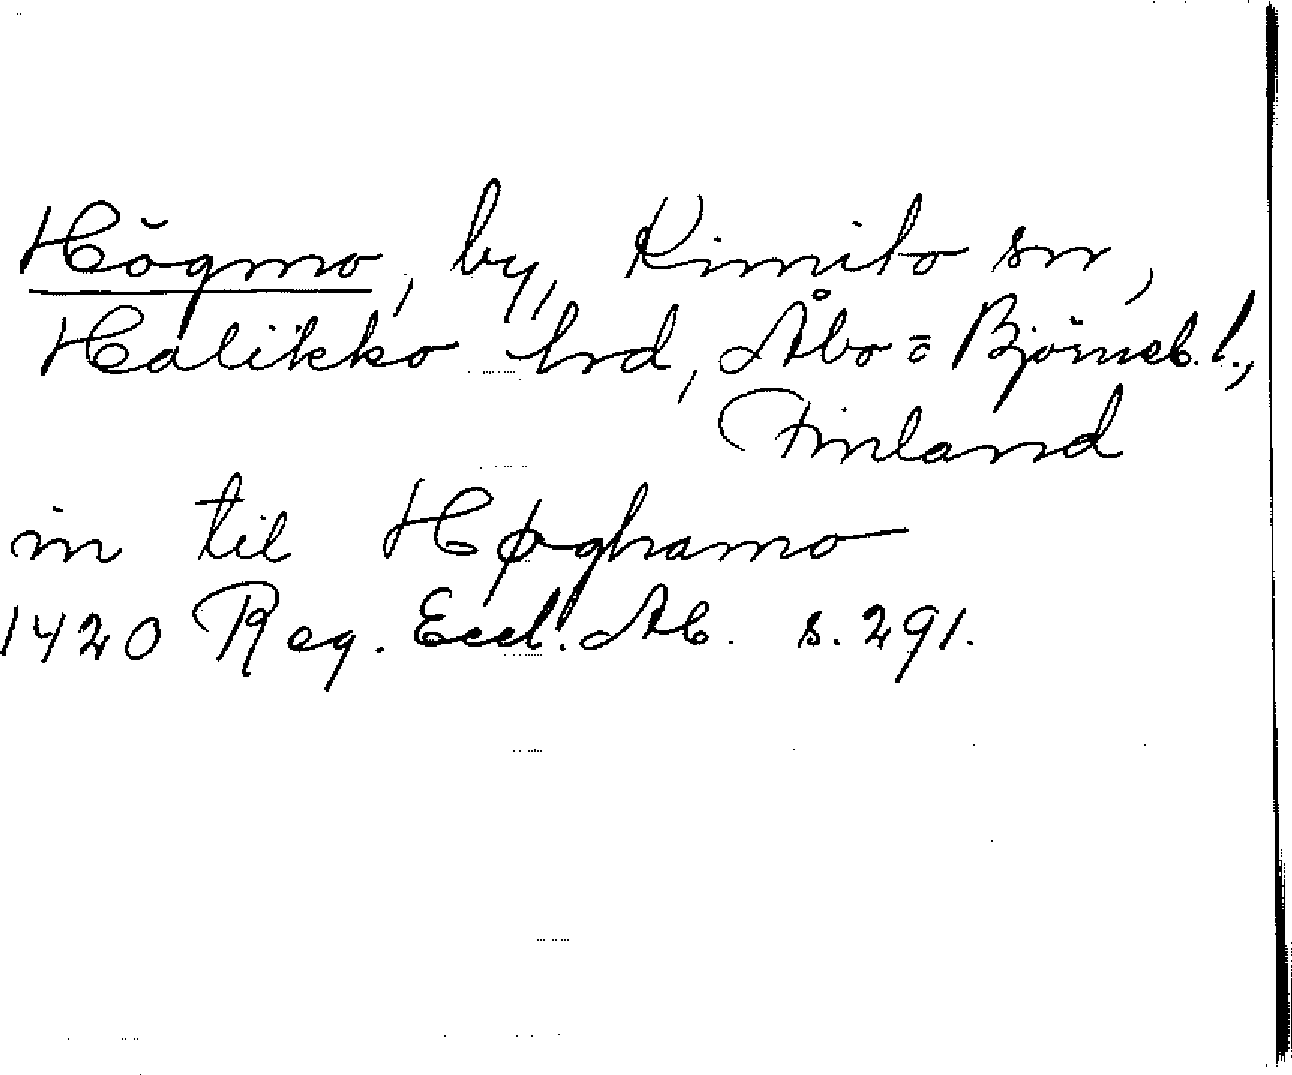 Högmo, by, Kimito sn,
Halikko hrd, Åbo=o Björneb. l.,
Finland
in til Høghamo
1420 Reg. Eccl. Ab. s. 291.